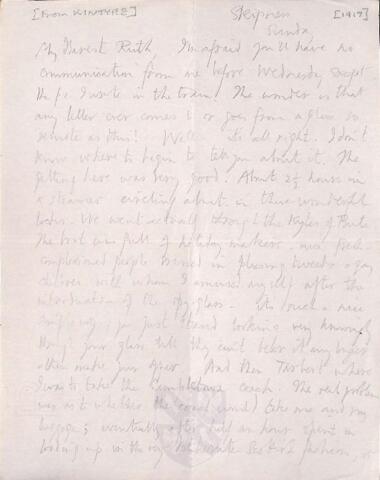 [From KINTYRE] Skipness [1917]
Sunday
My dearest Ruth, I'm afraid you'll have no
communication from me before Wednesday except
the p.c. I wrote in the train! The wonder is that
any letter ever comes to or goes from a place so
remote as this! Well its all right. I don't
know where to begin to tell you about it. The
getting here was very good. About 2½ hours in
a steamer circling about in these wonderful
lochs. We went actually through the Kyles of Bute
The boat was full of holiday makers - nice fresh
complexioned people dressed in pleasing tweeds & gay
children with whom I amused myself after the
introduction of the spy-glass. Its such a nice
just stand looking very knowingly
through your glass till they can't bear it any longer
& then make your offer. And then Tarbert where
I was to take the coach. The real problem
was as to whether the coach would take me and my
luggage; eventually after half an hour spent in
loading up in the most Scotch fashion,